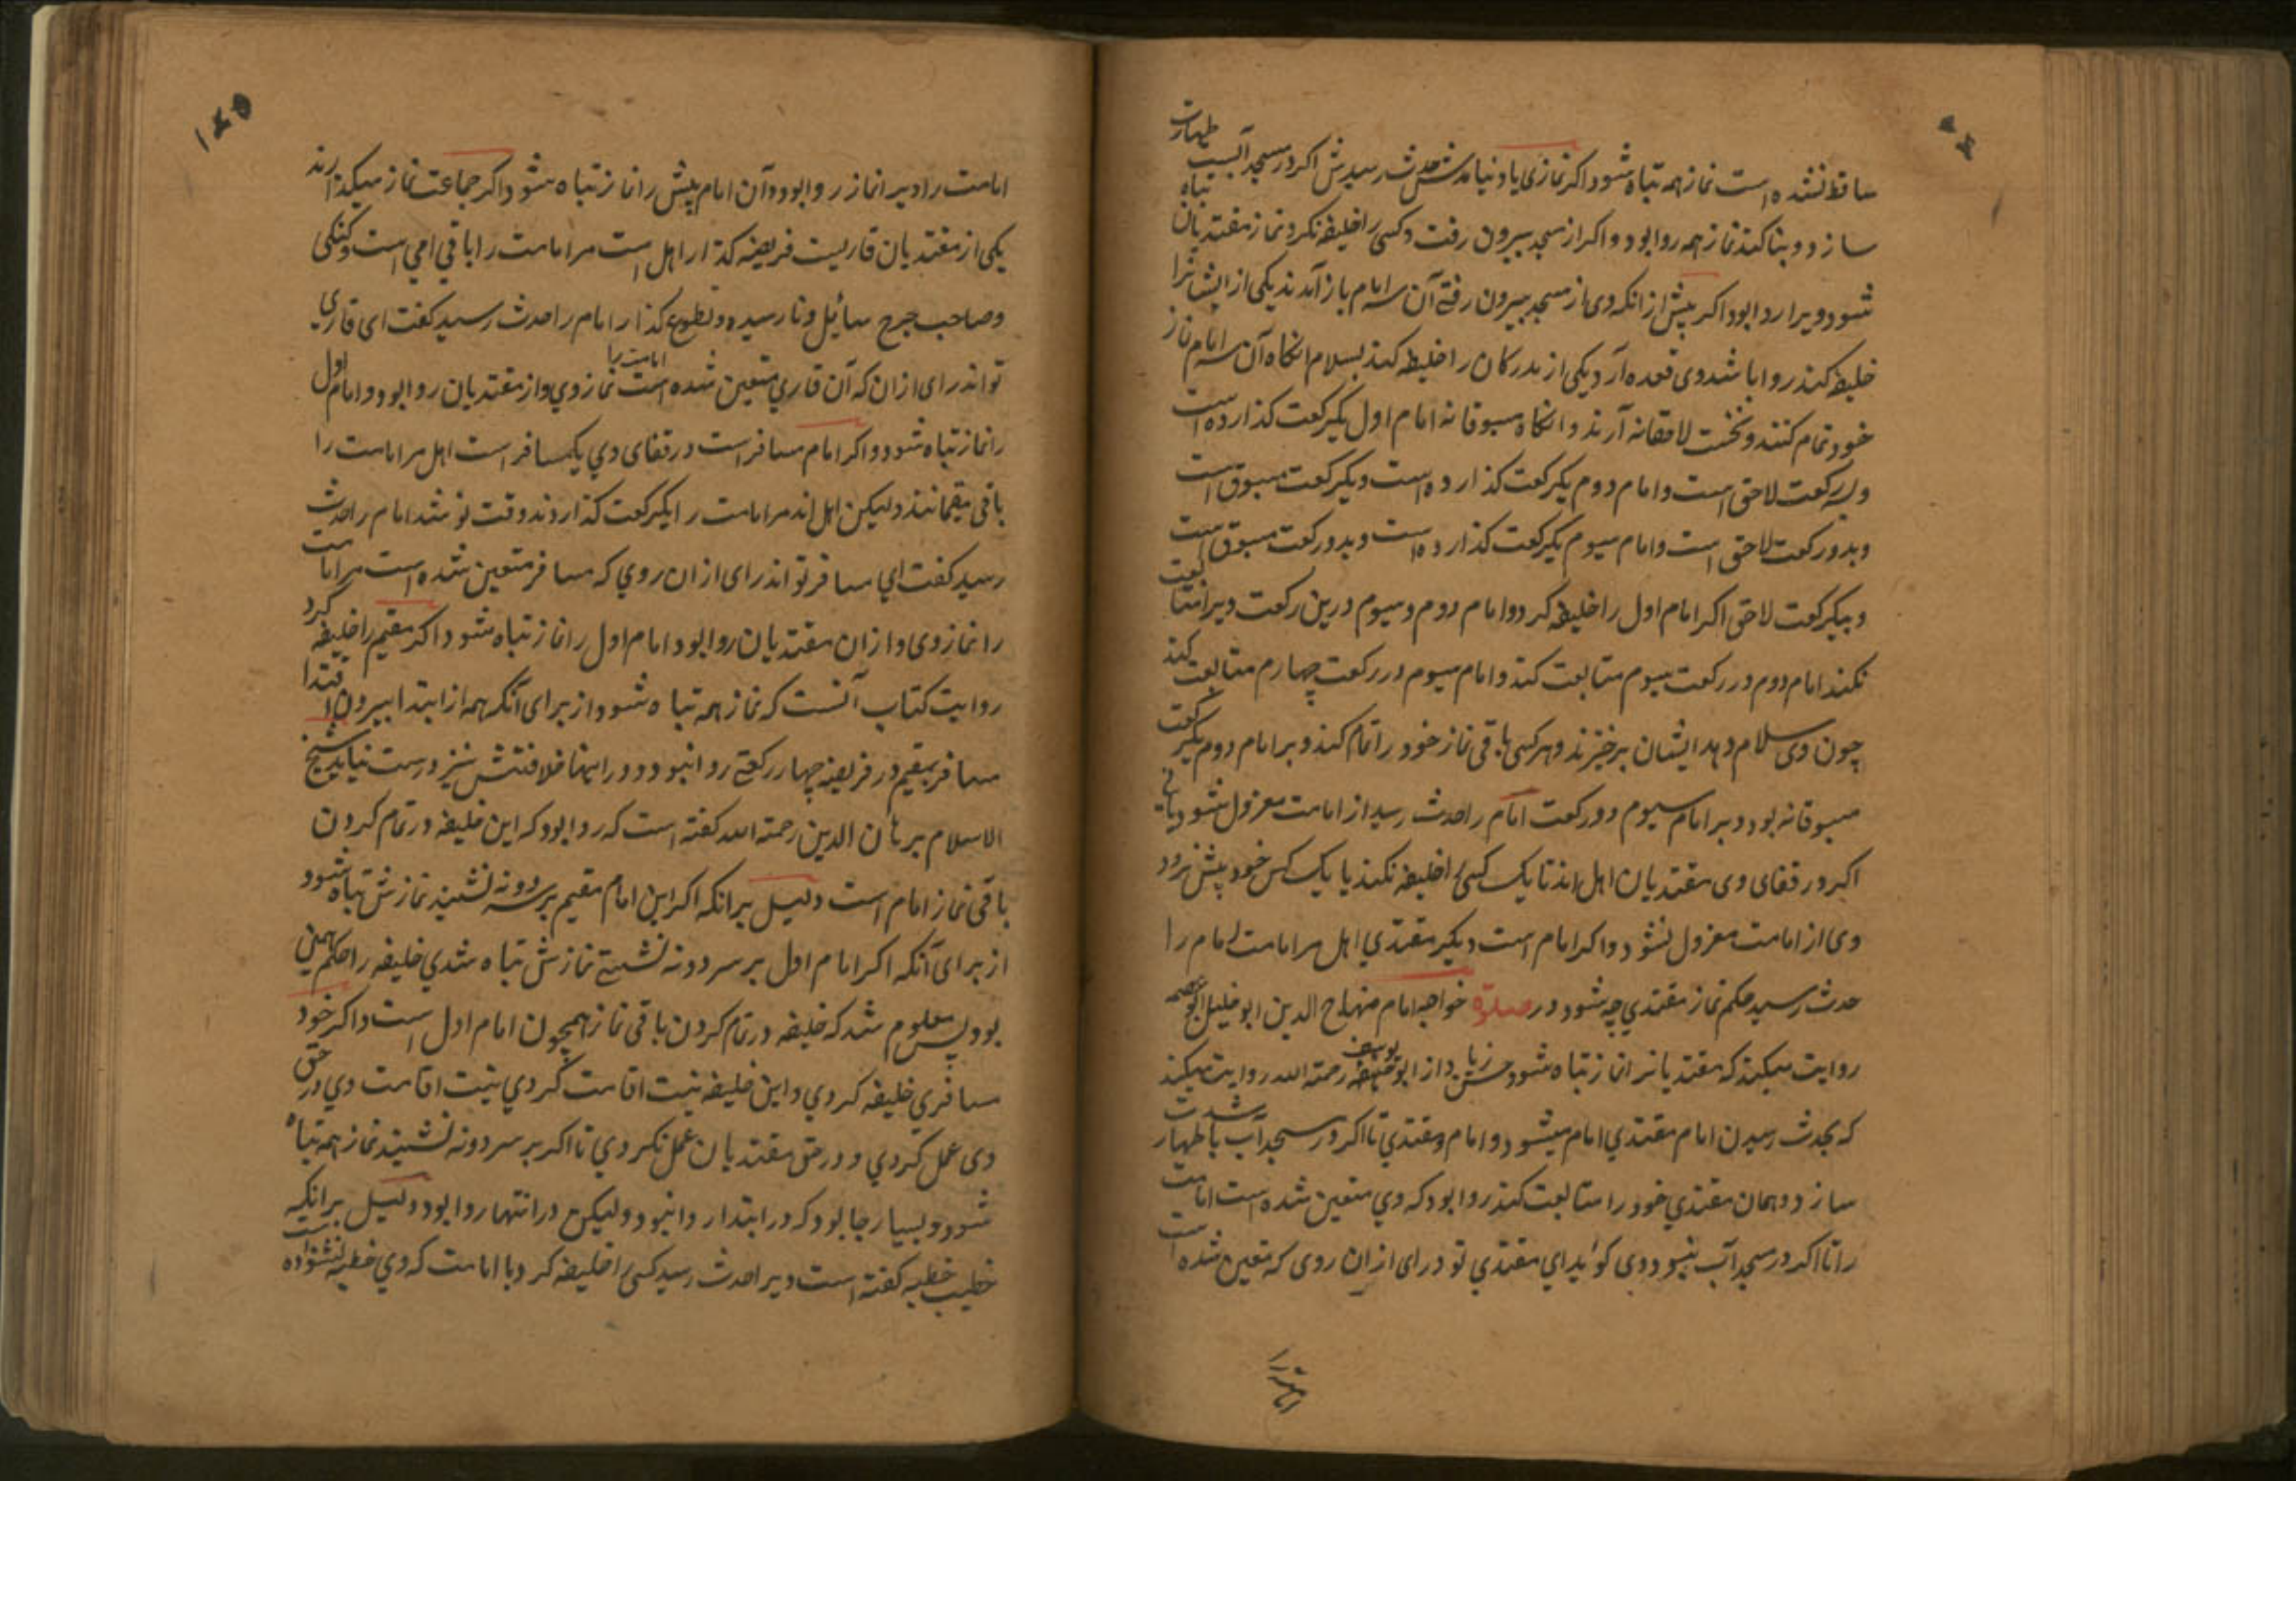 ساقط نشده است نماز همه تباه شود اکر نمازی یاد نیامدش حدث رسیدش اکر در مسجد آبست طهارت
سازد و بنا کند نماز همه روا بود و اکر از مسجد بیرون رفت و کسی را خلیفه نکرد نماز مقتدیان تباه
شود و ویرا روا بود اکر پیش از انکه وی از مسجد بیرون رفتی آن سه امام باز آمدند یکی از ایشانرا
خلیفه کند روا باشد وی قعده آرد یکی از مدرکان را خلیفه کند بسلام انکاه آن سه امام نماز
خود تمام کنند و نخست لاحقانه آرند و انکاه مسبوقانه امام اول یکرکعت کذارده است
و بسه رکعت لاحق است و امام دوم یکرکعت کذارده است و یکرکعت مسبوق است
و بدو رکعت لاحق است و امام سیوم یکرکعت کذارده است و بدو رکعت مسبوق است
و بیکرکعت لاحق اکر امام اول را خلیفه کرد و امام دوم و سیوم درین رکعت ویرا متابعت
نکنند امام دوم در رکعت سیوم متابعت کند و امام سیوم در رکعت چهارم متابعت کند
چون وی سلام دهد ایشان برخیزند و هر کسی باقی نماز خود را تمام کند و بر امام دوم یکرکعت
مسبوقانه بود و بر امام سیوم دو رکعت امام را حدث رسید از امامت معزول شود یا نی
اکر در قفای وی مقتدیان اهل اند تا یک کسی را خلیفه نکند یا یک کس خود پیش نرود
وی از امامت معزول نشود و اکر امام است و یکی مقتدی اهل مر امامت امام را
حدث رسید حکم نماز مقتدی چه شود در صلوة خواجه امام منهاج الدین ابو خلیل ابو عصمه
روایت میکند که مقتدیانرا نماز تباه شود حسن زیاد از ابو حنیفه یوسف رحمة الله روایت میکند
که بحدث رسیدن امام مقتدی امام میشود و امام مقتدی تا اکر در مسجد آب باشدت طهارت
سازد و همان مقتدی خود را متابعت کند روا بود که وی متعین شده است امامت
را تا اکر در مسجد آب نبود و وی کوید ای مقتدی تو در آی از ان روی که متعین شده است
امامت را
۱۴۵
امامت را ویرا نماز روا بود و آن امام پیش را نماز تباه شود و اکر جماعت نماز میکذارند
یکی از مقتدیان قاریست فریضه کذار اهل است مر امامت را باقی امی است و کنکی
و صاحب جرح سائل و نا رسیده و تطوع کذار امام را حدث رسید کفت ای قاری
تو اندر آی از ان که آن قاری متعین شده است امامت را نماز وی و از مقتدیان روا بود و امام اول
را نماز تباه شود و اکر امام مسافر است در قفای وی یک مسافر است اهل مر امامت را
باقی مقیمانند ولیکن اهل اند مر امامت را یکرکعت کذاردند وقت نو شد امام را حدث
رسید کفت ای مسافر تو اندر آی از ان روی که مسافر متعین شده است مر امامت
را نماز وی و از ان مقتدیان روا بود امام اول را نماز تباه شود اکر مقیم را خلیفه کرد
روایت کتاب آنست که نماز همه تباه شود از برای آنکه همه از ابتدا بیرون اقتدا
مسافر بمقیم در فریضه چهار رکعتی روا نبود و در اینها خلافتش نیز درست نیاید شیخ
الاسلام برهان الدین رحمة الله کفته است که روا بود که این خلیفه در تمام کردن
باقی نماز امام است دلیل برانکه اکر این امام مقیم بر سر دو نه نشیند نمازش تباه شود
از برای آنکه اکر امام اول بر سر دو نه نشستی نمازش تباه شدی خلیفه را حکم همین
بود پس معلوم شد که خلیفه در تمام کردن باقی نماز همچون امام اول است و اکر خود
مسافری خلیفه کردی و این خلیفه نیت اقامت کردی نیت اقامت وی در حق
وی عمل کردی و در حق مقتدیان عمل نکردی تا اکر بر سر دو نه نشیند نماز همه تباه
شود و بسیار جا بود که در ابتدا روا نبود ولیکن در انتها روا بود دلیل برانکه
خطیب خطبه کفته است ویرا حدث رسید کسی را خلیفه کرد با امامت که وی خطبه نشنوده است